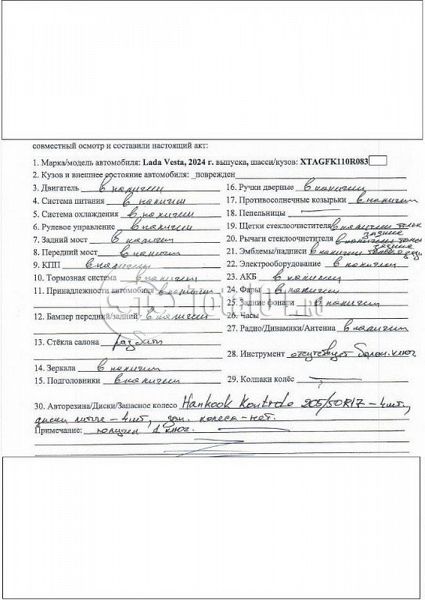 совместный осмотр и составили настоящий акт:
1. Марка/модель автомобиля: Lada Vesta, 2024 г. выпуска, шасси/кузов: XTAGFK110R083
2. Кузов и внешнее состояние автомобиля: поврежден
3. Двигатель в наличии
4. Система питания в наличии
5. Система охлаждения в наличии
6. Рулевое управление в наличии
7. Задний мост в наличии
8. Передний мост в наличии
9. КПП в наличии
10. Тормозная система в наличии
11. Принадлежности автомобиля в наличии
12. Бампер передний/задний в наличии
13. Стёкла салона разбит
14. Зеркала в наличии
15. Подголовники в наличии
16. Ручки дверные в наличии
17. Противосолнечные козырьки в наличии
18. Пепельницы
19. Щетки стеклоочистителя в наличии
20. Рычаги стеклоочистителя заднее в наличии
21. Эмблемы/надписи в наличии
22. Электрооборудование в наличии
23. АКБ в наличии
24. Фары в наличии
25. Задние фонари в наличии
26. Часы
27. Радио/Динамики/Антенна в наличии
28. Инструмент отсутствует балон. ключ
29. Колпаки колёс
30. Авторезина/Диски/Запасное колесо Hankook Kontrole 205/50R17 – 4шт,
диски литые – 4шт, зап. колеса – нет.
Примечание: получен 1 ключ.